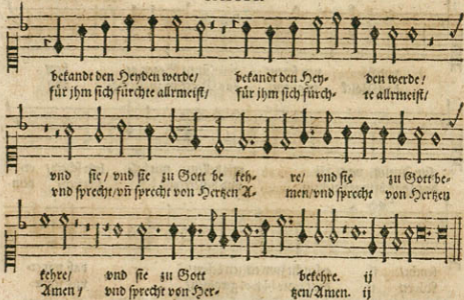 bekandt den Heyden werde/ bekandt den Hey- den werde/
für jhm sich fürchte allrmeist/ für jhm sich fürch- te allrmeist/
vnd sie/ vnd sie zu Gott be keh- re/ vnd sie zu Gott be-
vnd sprecht/ vñ sprecht von Hertzen A- men/ vnd sprecht von Hertzen
kehre/ vnd sie zu Gott bekehre. ij
Amen/ vnd sprecht von Her- tzen/Amen. ij